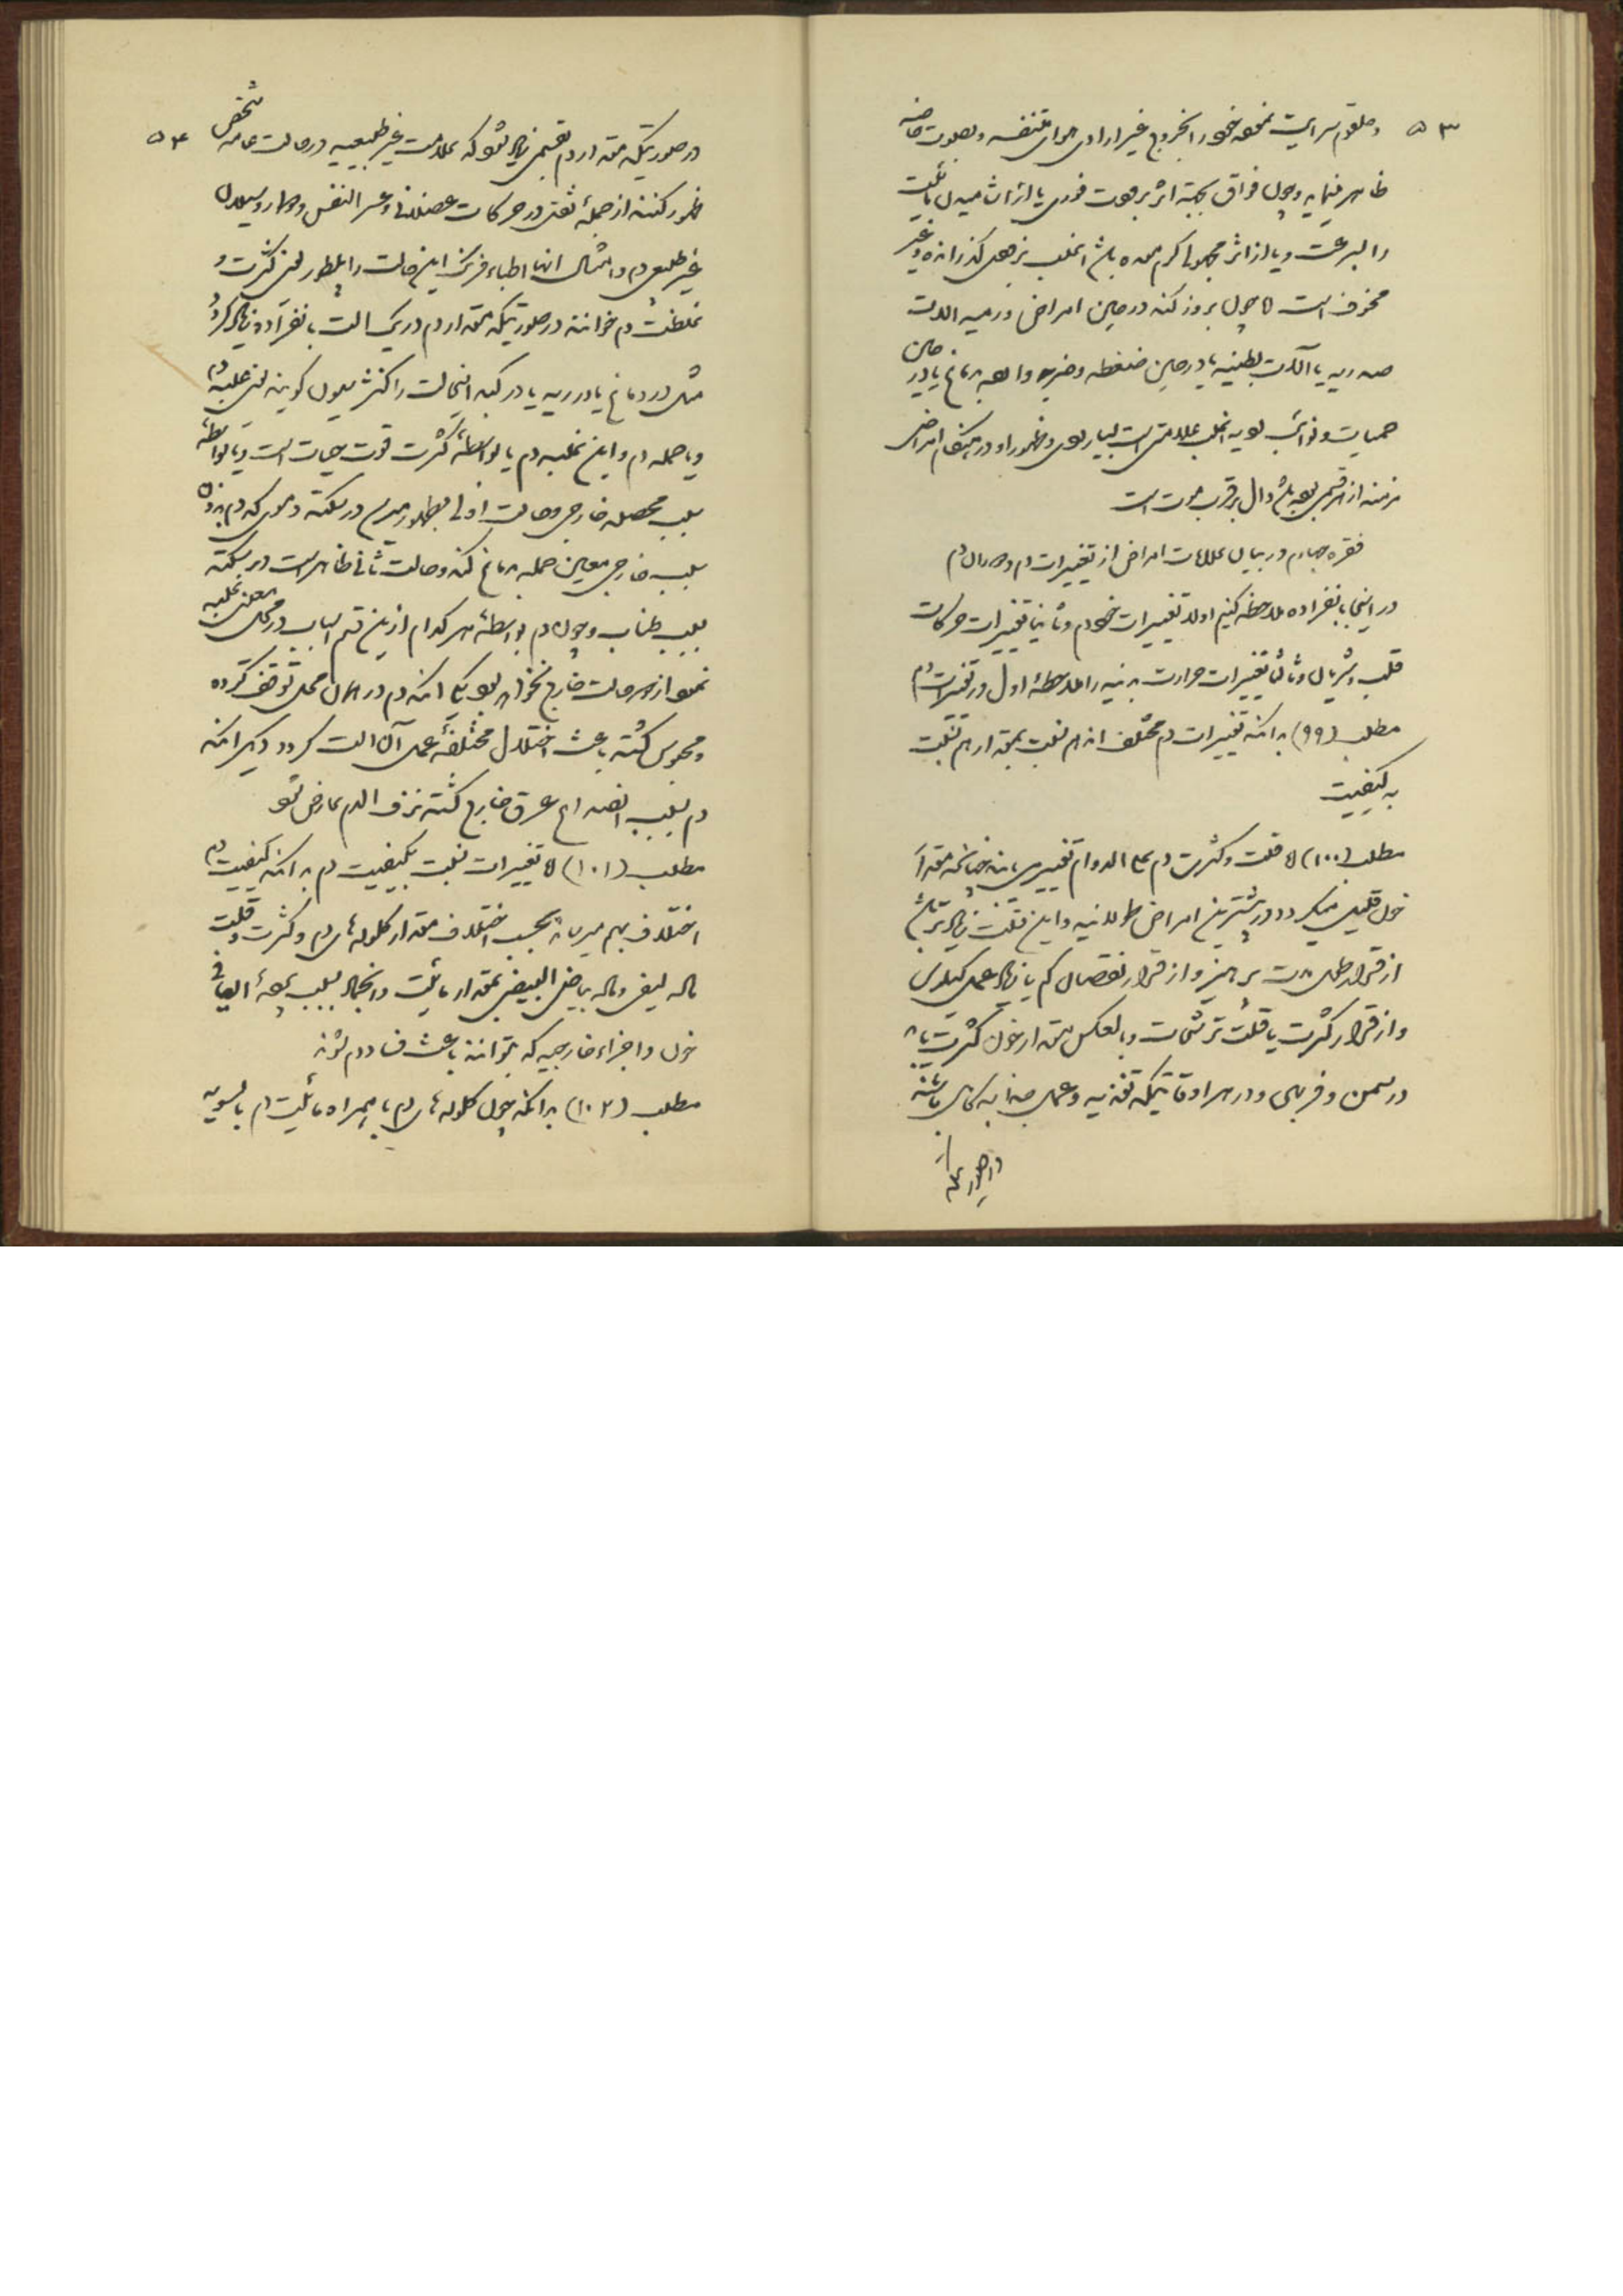 ۵۳
و حلقوم سرایت نموده خود را بخروج غیر ارادی هوای متنفسه و بصوت خاصه
ظاهر مینماید و چون فواق بجهته اثر برودت فوری یا از اثر
را بسرعت و یا از اثر باشد اغلب بزودی گذرانده و غیر
مخوف است اما چون بروز کند در حین امراض ورمیه آلات
صدریه یا آلات بطنیه یا در حین ضغطه و ضربه وارده بدماغ یا در حین
حمیات و نوائب اغلب علامتی است بسیار بدی و ظهور او در هنگام امراض
مزمنه از هر قسمی بوده باشد دال بر قرب موت است
فقره چهارم در بیان علامات امراض از تغییرات دم و دوران دم
در اینجا بانفراده ملاحظه کنیم اولا تغییرات خود دم و ثانیا تغییرات حرکات
قلب و شریان و ثالثا تغییرات حرارت بدنیه را ملاحظه اول در تغییرات دم
مطلب (۹۹) بدانکه تغییرات دم مختلف اند هم نسبت بمقدار هم نسبت
به کیفیت
مطلب (۱۰۰) اما قلت و کثرت دم علی الدوام تغییری یابند چنانکه مقدار
خون قلیل میگردد در بیشترین امراض طولانیه و این قلت زیادتر باشد
از قرار طول مدت پرهیز و از قرار نقصان کم یا زیاد عمل کیلوس
و از قرار کثرت یا قلت ترشحات و بالعکس مقدار خون کثرت یابد
در سمن و فربهی و در هر اوقاتیکه تغذیه و عمل جذابه کامل باشند
در صورتیکه
۵۴
در صورتیکه مقدار دم بقسمی زیاد شود که علامت غیر طبیعیه در حالت عامه شخص
ظهور کنند از جمله ثقل در حرکات عضلانی و عسر التنفس و دوار و سیلان
غیر طبیعی دم و امثال انها اطباء فرنگ این حالت را پلطور یعنی کثرت و
غلظت دم خوانند در صورتیکه مقدار دم در یک آلت بانفراده زیاد گردد
مثل در دماغ یا در ریه یا در کبد اینحالت را کنژسیون گویند یعنی غلبه دم
و یا حمله دم و این غلبه دم یا بواسطه کثرت قوت حیات است و یا بواسطه
سبب محصله خارجی و حالت اولی بظهور میرسد در سکته دموی که دم بدون
سبب خارجی معین حمله بدماغ کند و حالت ثانی ظاهر است در سکته
بسبب طناب و چون دم بواسطه هر کدام ازین قسم اسباب در محل معین غلبه
نمود از دو حالت خارج نخواهد بود یکی آنکه دم در همان محل توقف کرده
و محبوس گشته باعث اختلال مختلفه عمل آن آلت گردد دیگر آنکه
دم بسبب انصداع عرق خارج گشته نزف الدم عارض شود
مطلب (۱۰۱) اما تغییرات نسبت بکیفیت دم بدانکه کیفیت دم
اختلاف بهم میرساند بحسب اختلاف مقدار کلوله های دم و کثرت و قلت
ماده لیفی و ماده بیاض البیضی بمقدار مائیت و انجماد بسبب
خون و اجزاء خارجیه که بتوانند باعث فساد دم شوند
مطلب (۱۰۲) بدانکه چون کلوله های دم با همراه مائیت دم بالسویه